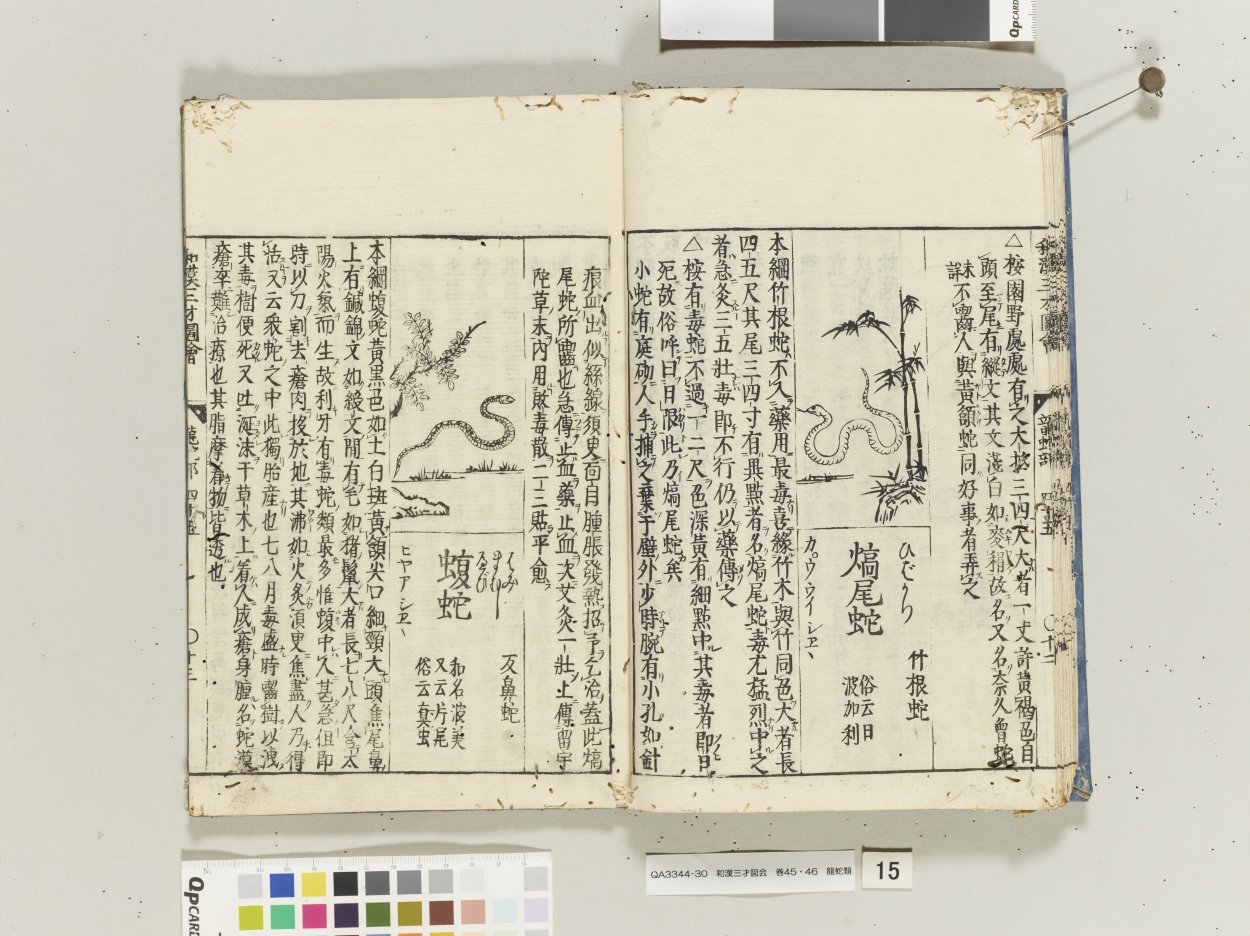 △按園野處處有之大抵三四尺大者一丈許黃褐色自
頭至尾有縱文其文淺白如麥稍故名又名奈久曾蛇
未詳不囓人與黃頷蛇同好事者弄之
ひばかり
熇尾蛇
カ゜ウ ウイ シエヽ
竹根蛇
俗云日
波加利
本綱竹根蛇不入藥用最毒喜緣竹木與竹同色大者長
四五尺其尾三四寸有異點者名熇尾蛇毒尤猛烈中之
者急灸三五壯毒卽不行仍以藥傅之
△按有毒蛇不過一二尺色深黃有細點中其毒者卽日
死故俗呼曰日限此乃熇尾蛇矣
小蛇有庭砌人手捕之棄于壁外少時腕有小孔如針
痕血出似絲線須臾面目腫脹發熱招予乞治蓋此熇
尾蛇所囓也急傅止血藥止血次艾灸一壯上傅留守
陀草末內用敗毒散一二貼平愈
はみ
まむし
へび
蝮蛇
ヒヤアシエヽ
反鼻蛇
和名波美
又云片尾
俗云真虫
本綱蝮蛇黃黑色如土白斑黃頷尖口細頸大頭焦尾鼻
上有鍼錦文如綬文間有毛如猪鬣大者長七八尺含太
陽火氣而生故利牙有毒蛇類最多惟蝮中人甚急但卽
時以刀割去瘡肉投於地其沸如火炙須臾焦盡人乃得
活又云衆蛇之中此獨胎産也七八月毒盛時囓樹以洩
其毒樹便死又吐涎沫于草木上着人成瘡身腫名蛇漠
瘡卒難治療也其脂摩着物皆透也
和漢三才圖會
QA3344-30 和漢三才図会 巻45・46 龍蛇類
15
QpCARD
QpCARD